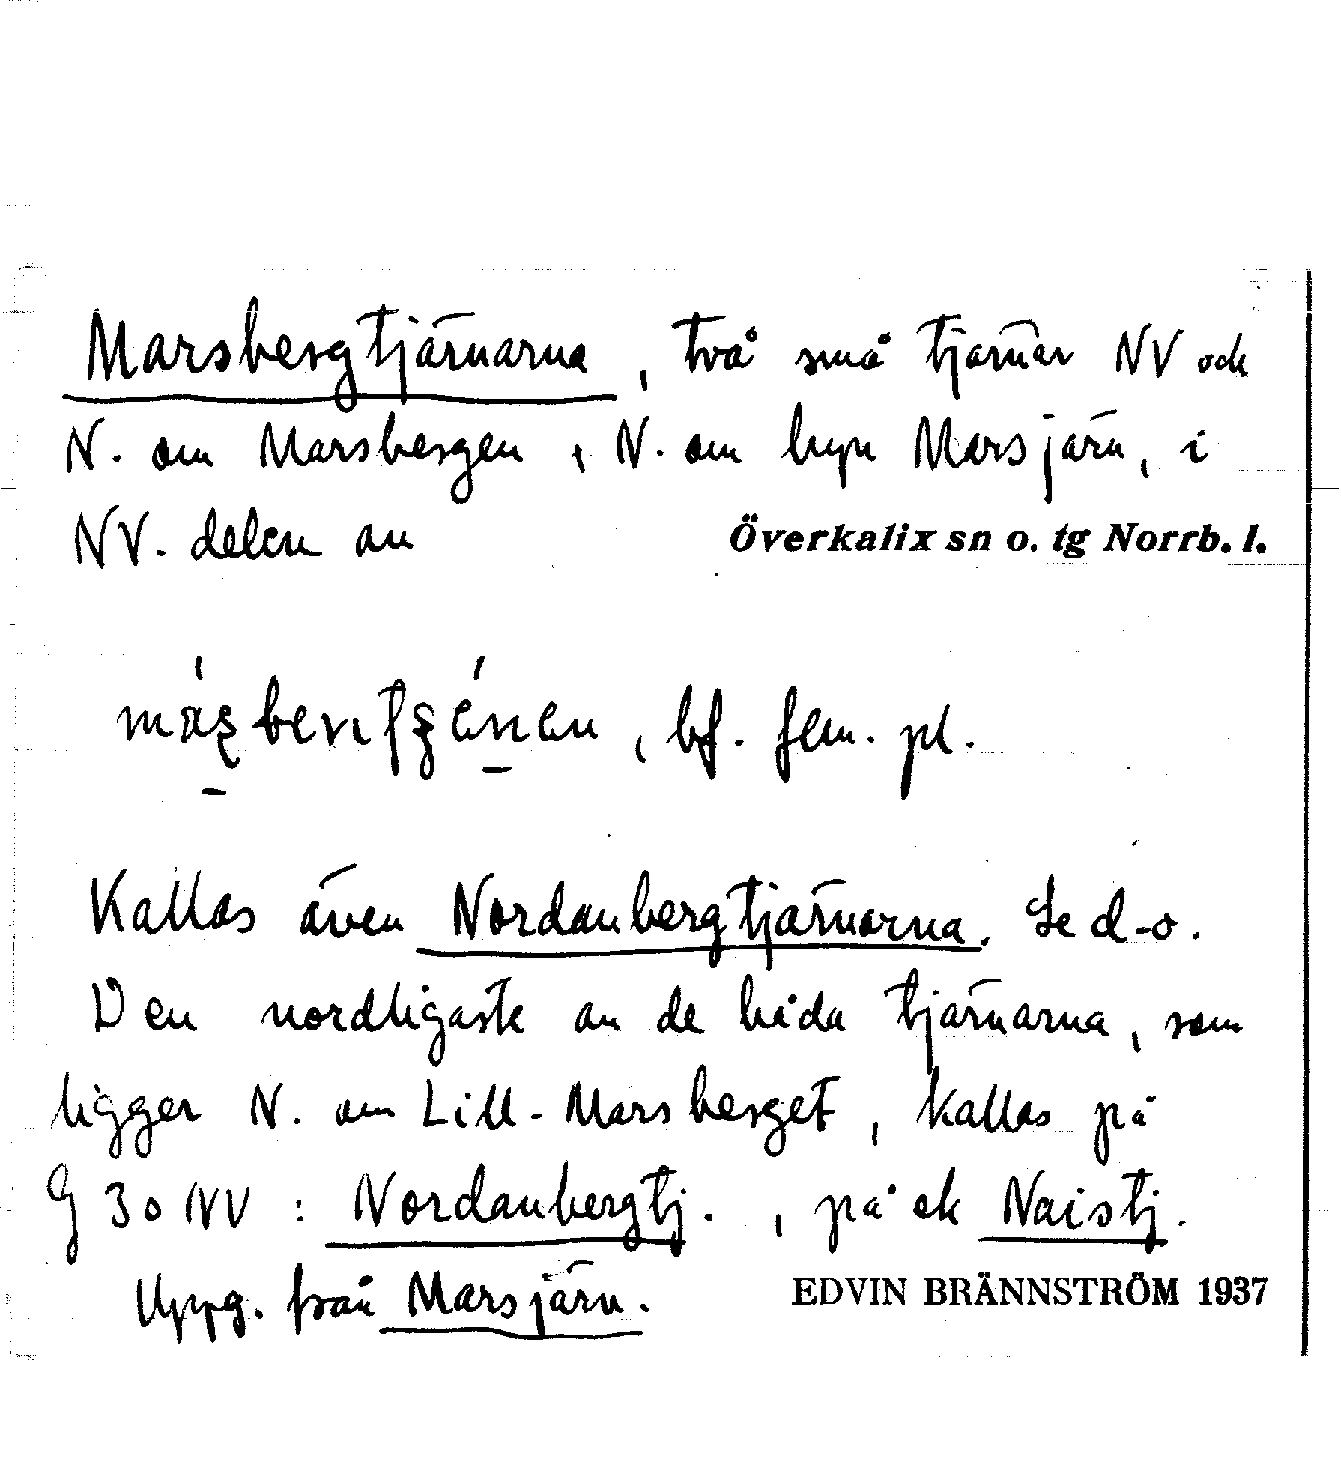 Marsbergtjärnarna, två små tjärnar NV och
N. om Marsbergen, N. om byn Marsjärn, i
NV. delen av Överkalix sn o. tg Norrb. l.
, bf. fem. pl.
Kallas även Nordanbergtjärnarna. Se d-o.
Den nordligaste av de båda tjärnarna, som
ligger N. om Lill-Marsberget, kallas på
G 30 NV : Nordanbergtj. , på ek Naistj.
Uppg. från Marsjärn. EDVIN BRÄNNSTRÖM 1937